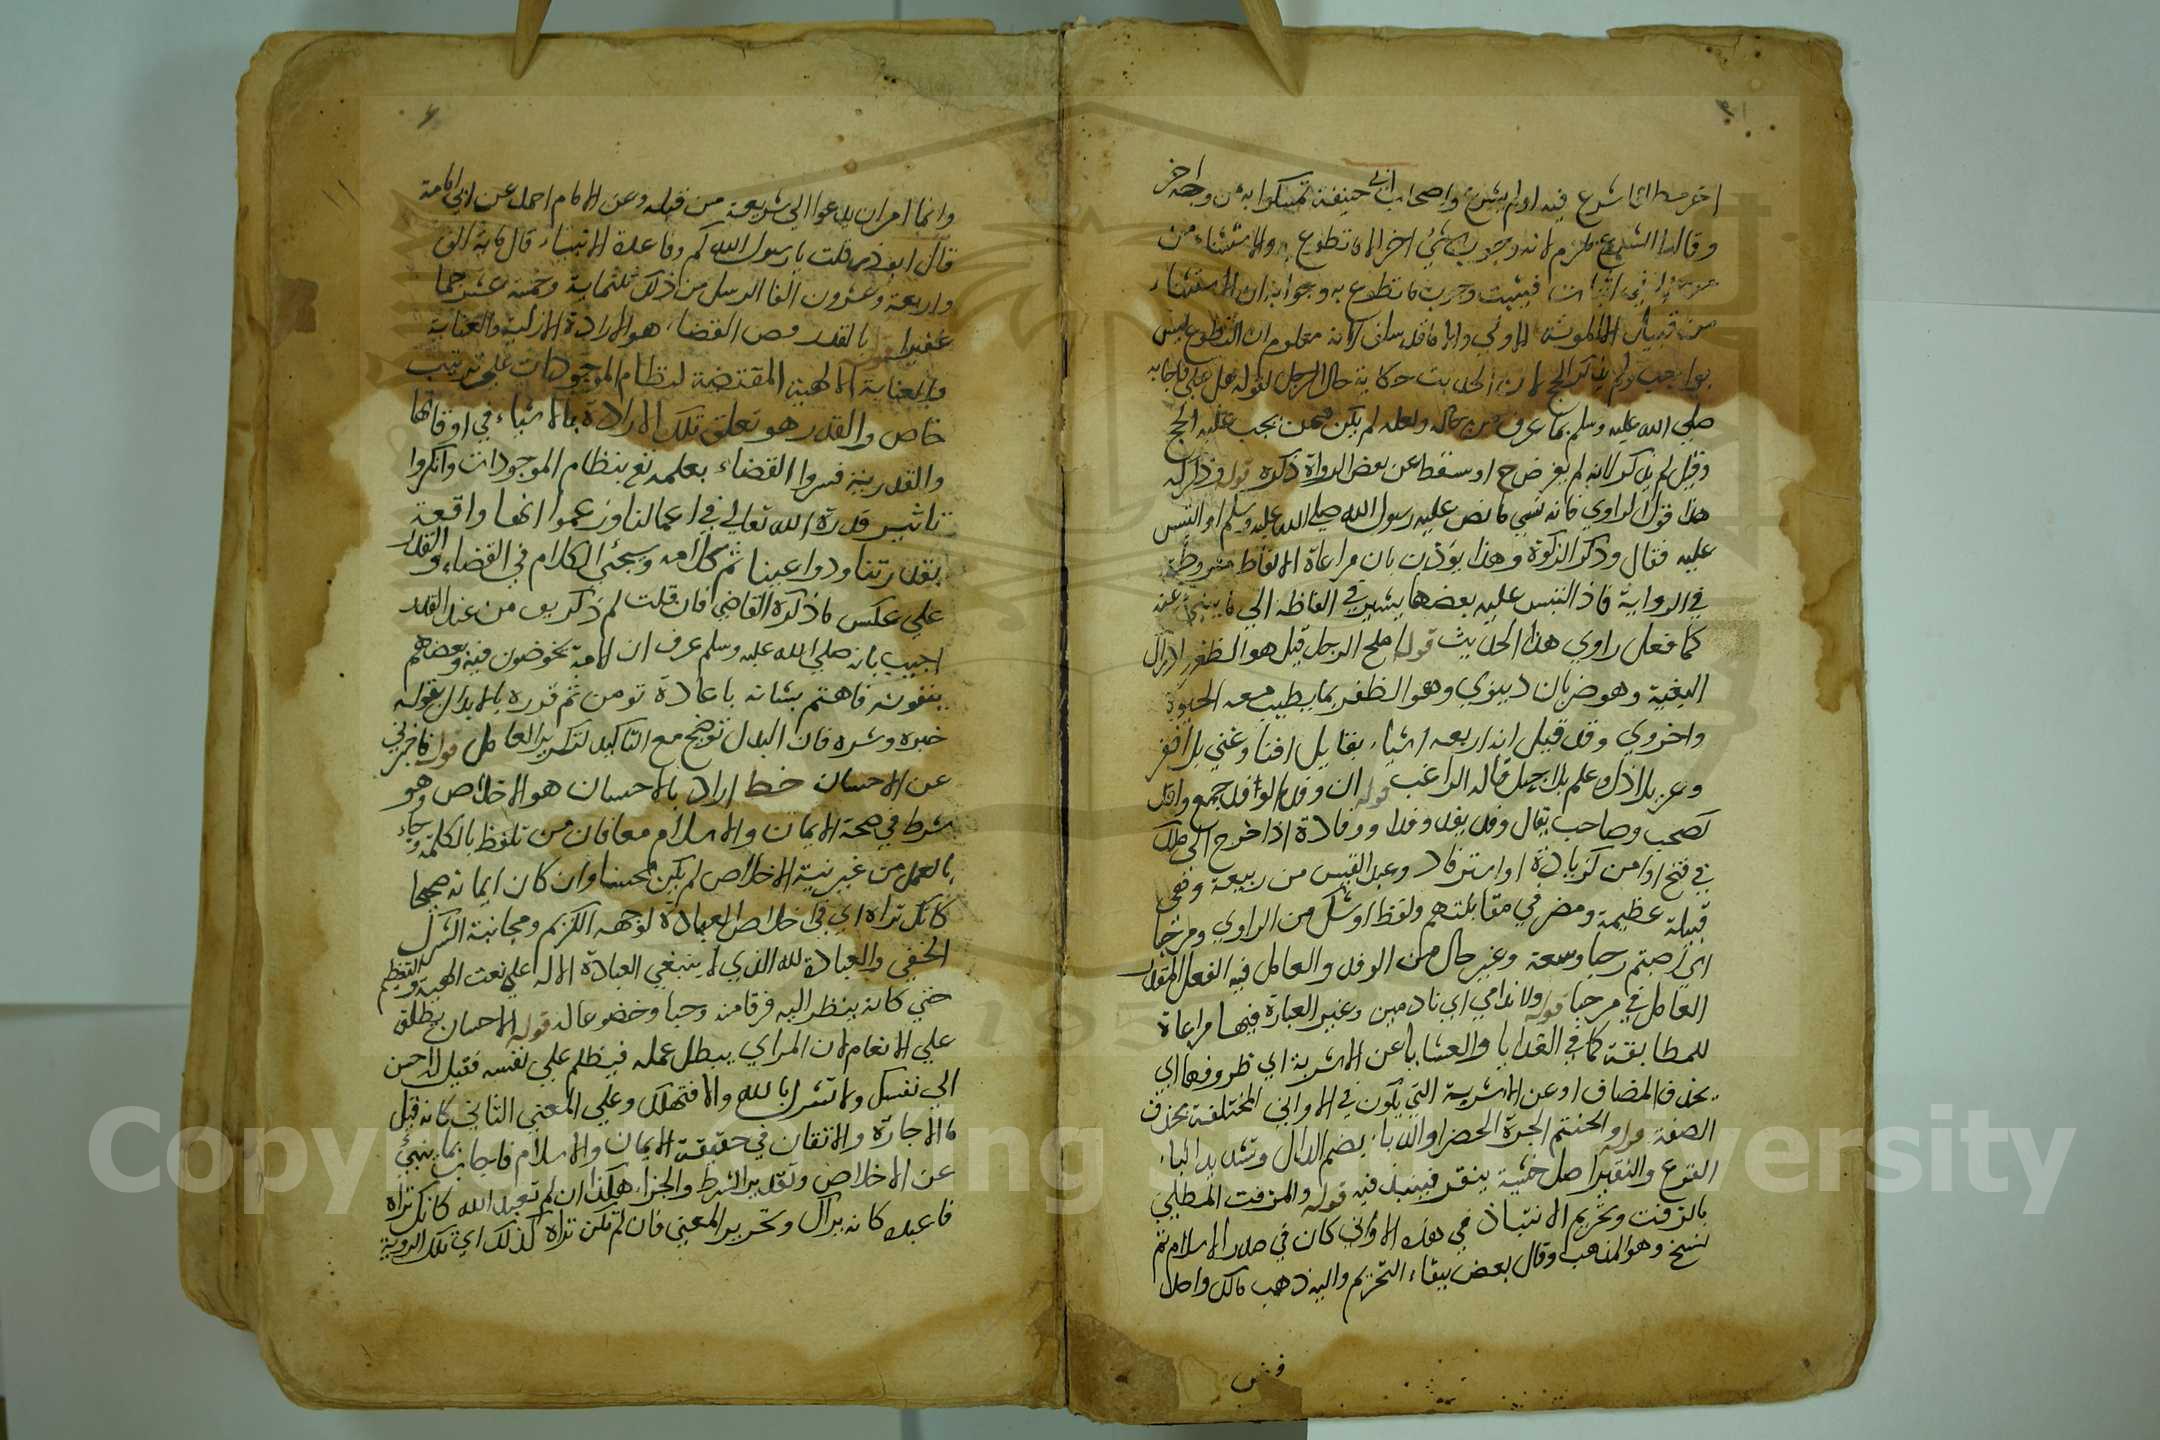 اخر مما شرع فيه او لم يشرع واصحاب ابي حنيفة تمسكوا به من وجه اخر
وقالوا الشروع ملزم لانه وجوب شيء اخر الا ما تطوع به والاستثناء من
فيثبت وجوب ما تطوع به وجوابه ان الاستثناء
من قبيل الاولي والا ما قد سلف لانه معلوم ان التطوع ليس
بواجب ولم يذكر الحج لان الحديث حكاية حال الرجل لقوله هل علي فاجابه
صلي الله عليه وسلم بما عرف من حاله ولعله لم يكن ممن يجب عليه الحج
وقيل لم يذكر لانه لم يفرض ح او سقط عن بعض الرواة ذكره قوله وذكر له
هذا قول الراوي فانه نسي ما نص عليه رسول الله صلي الله عليه وسلم او التبس
عليه فقال وذكر الزكوة وهذا يؤذن بان مراعاة الالفاظ مشروطة
في الرواية فاذا التبس عليه بعضها يشير في الفاظه الي ما ينبئ عنه
كما فعل راوي هذا الحديث قوله افلح الرجل قيل هو الظفر وادراك
البغية وهو ضربان دنيوي وهو الظفر بما يطيب معه الحيوة
واخروي وقد قيل انه اربعة اشياء بقا بلا فنا وغني بلا فقر
وعز بلا ذل وعلم بلا جهل قاله الراغب قوله ان وفد الوفد جمع وافد
كصحب وصاحب يقال وفد يفد وفدا ووفادة اذا خرج الي ملك
في فتح او امن كزيادة او استرفاد وعبد القيس من ربيعة وهي
قبيلة عظيمة ومضر في مقابلتهم ولفظ او شك من الراوي ومرحبا
اي اصبتم رحبا وسعة وغير حال من الوفد والعامل فيه الفعل المقدر
العامل في مرحبا قوله ولا ندامي اي نادمين وغير العبارة فيها مراعاة
للمطابقة كما في الغدايا والعشايا عن الاشربة اي ظروفها اي
يحذف المضاف او عن الاشربة التي يكون في الاواني المختلفة بحذف
الصفة قوله والحنتم الجرة الخضرا والدبا بضم الدال وتشديد الباء
القرع والنقير اصل خشبة ينقر فينبذ فيه قوله والمزفت المطلي
بالزفت وتحريم الانتباذ في هذه الاواني كان في صدر الاسلام ثم
نسخ وهو المذهب وقال بعض ببقاء التحريم واليه ذهب مالك واحمد
وانما امر ان يدعوا الي شريعة من قبله وعن الامام احمد عن ابي امامة
قال ابو ذر قلت يا رسول الله كم وفا عدة الانبياء قال ماية الف
واربعة وعشرون الفا الرسل من ذلك ثلثماية وخمسة عشر جما
غفيرا قوله بالقدر القضا، هو الارادة الازلية والعناية
والعناية الالهية المقتضية لنظام الموجودات علي ترتيب
خاص والقدر هو تعلق تلك الارادة بالاشياء في اوقاتها
والقدرية فسروا القضاء بعلمه تع بنظام الموجودات وانكروا
تاثير قدرة الله تعالي في اعمالنا وزعموا انها واقعة
بقدرتنا ودواعينا تم كلامه وسيجئ الكلام في القضاء والقدر
علي عكس ما ذكره القاضي فان قلت لم ذكر من عند القدر
اجيب بانه صلي الله عليه وسلم عرف ان الامة يخوضون فيه وبعضهم
ينفونه فاهتم بشانه باعادة تومن ثم قرره بالابدال بقوله
خيره وشره فان البدل توضيح مع التاكيد لتكرير العامل قوله فاخبرني
عن الاحسان خط اراد بالاحسان هو الاخلاص وهو
شرط في صحة الايمان والاسلام معا فان من تلفظ بالكلمة وجاء
بالعمل من غير نية الاخلاص لم يكن محسنا وان كان ايمانه صحيحا
كانك تراه اي في اخلاص العبادة لوجهه الكريم ومجانبة الشرك
الخفي والعبادة لله الذي لا ينبغي العبادة الا له علي نعت الهيبة والتعظيم
حتي كانه ينظر اليه فرقا منه وحيا وخضوعا له قوله الاحسان يطلق
علي الانعام لان المراي يبطل عمله فيظلم علي نفسه فقيل له احسن
الي نفسك ولا تشرك بالله والا فتهلك وعلي المعني الثاني كانه قيل
ما الاجادة والاتقان في حقيقة الايمان والاسلام فاجاب بما ينبئ
عن الاخلاص وتقدير الشرط والجزاء هكذا ان لم تعبد الله كانك تراه
فاعبده كانه يراك وتحرير المعني فان لم تكن تراه كذلك اي تلك الروية
Copyright © King Saud University